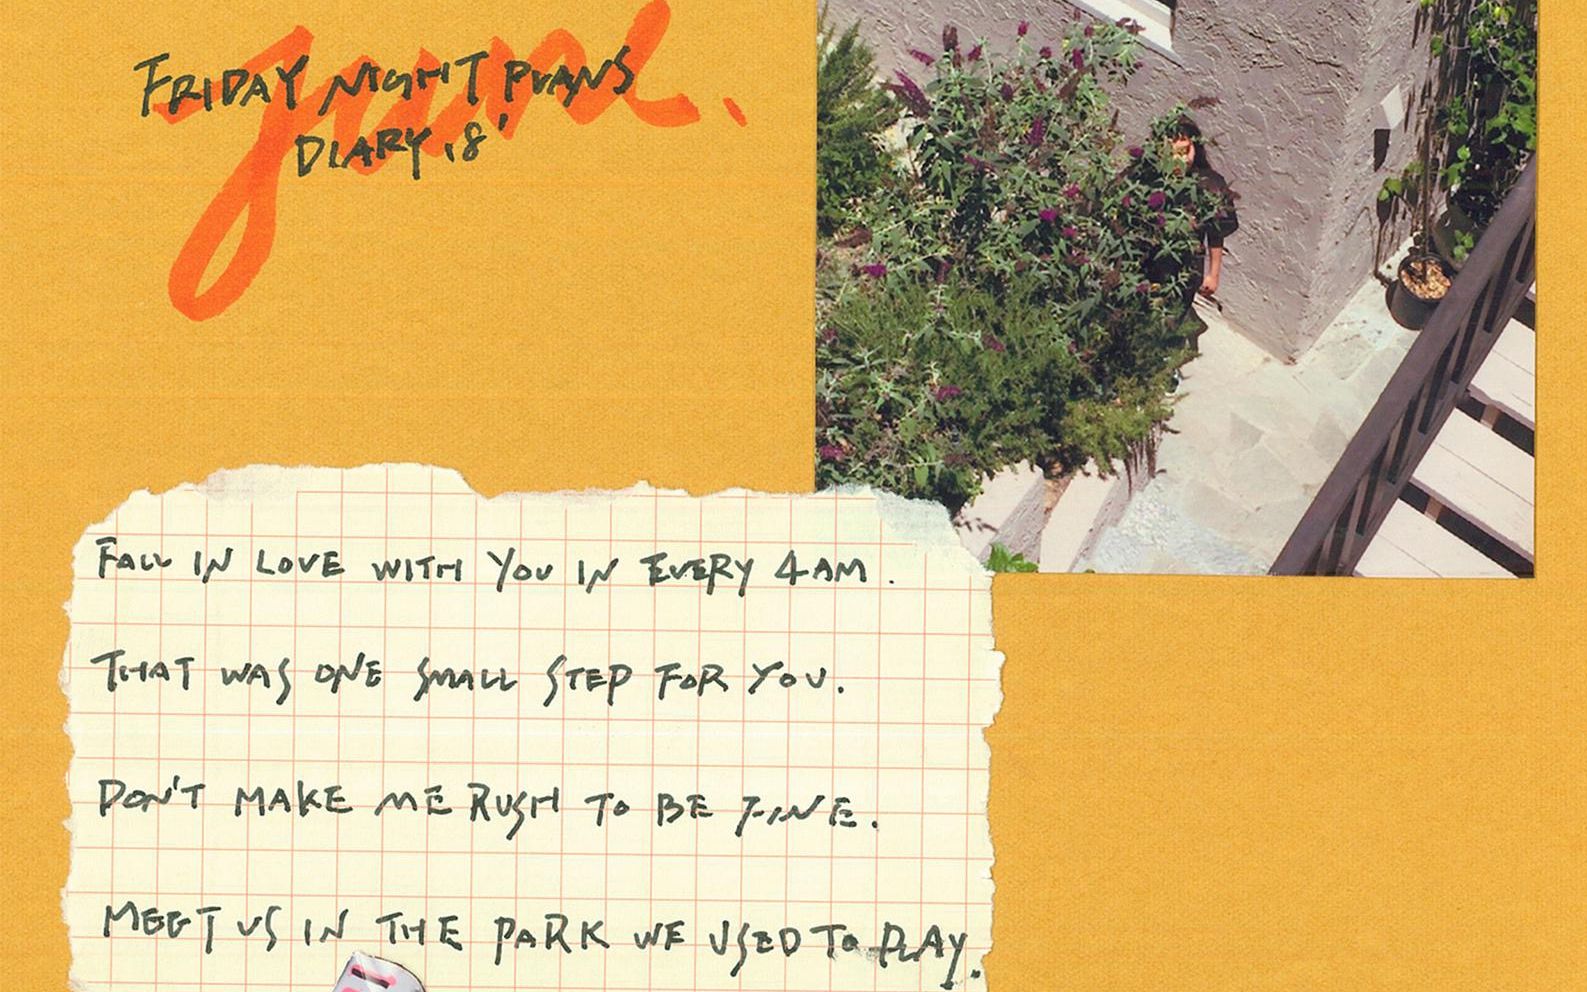 June.
FRIDAY NIGHT PLANS
DIARY.18'
FALL IN LOVE WITH YOU IN EVERY 4AM.
THAT WAS ONE SMALL STEP FOR YOU.
DON'T MAKE ME RUSH TO BE FINE.
MEET US IN THE PARK WE USED TO PLAY.